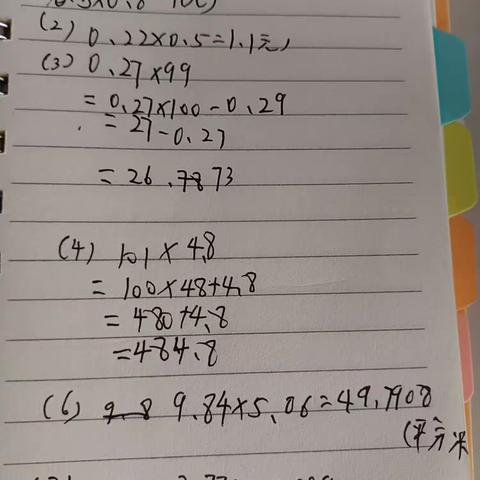 (2) 0.22×0.5=1.1元)
(3) 0.27×99
= 0.27×100-0.29
= 27-0.27
= 26.7873
(4) 101×4.8
= 100×48+4.8
= 480+4.8
=484.8
(6) 9.8 9.84×5.06=49.7908
(平方米